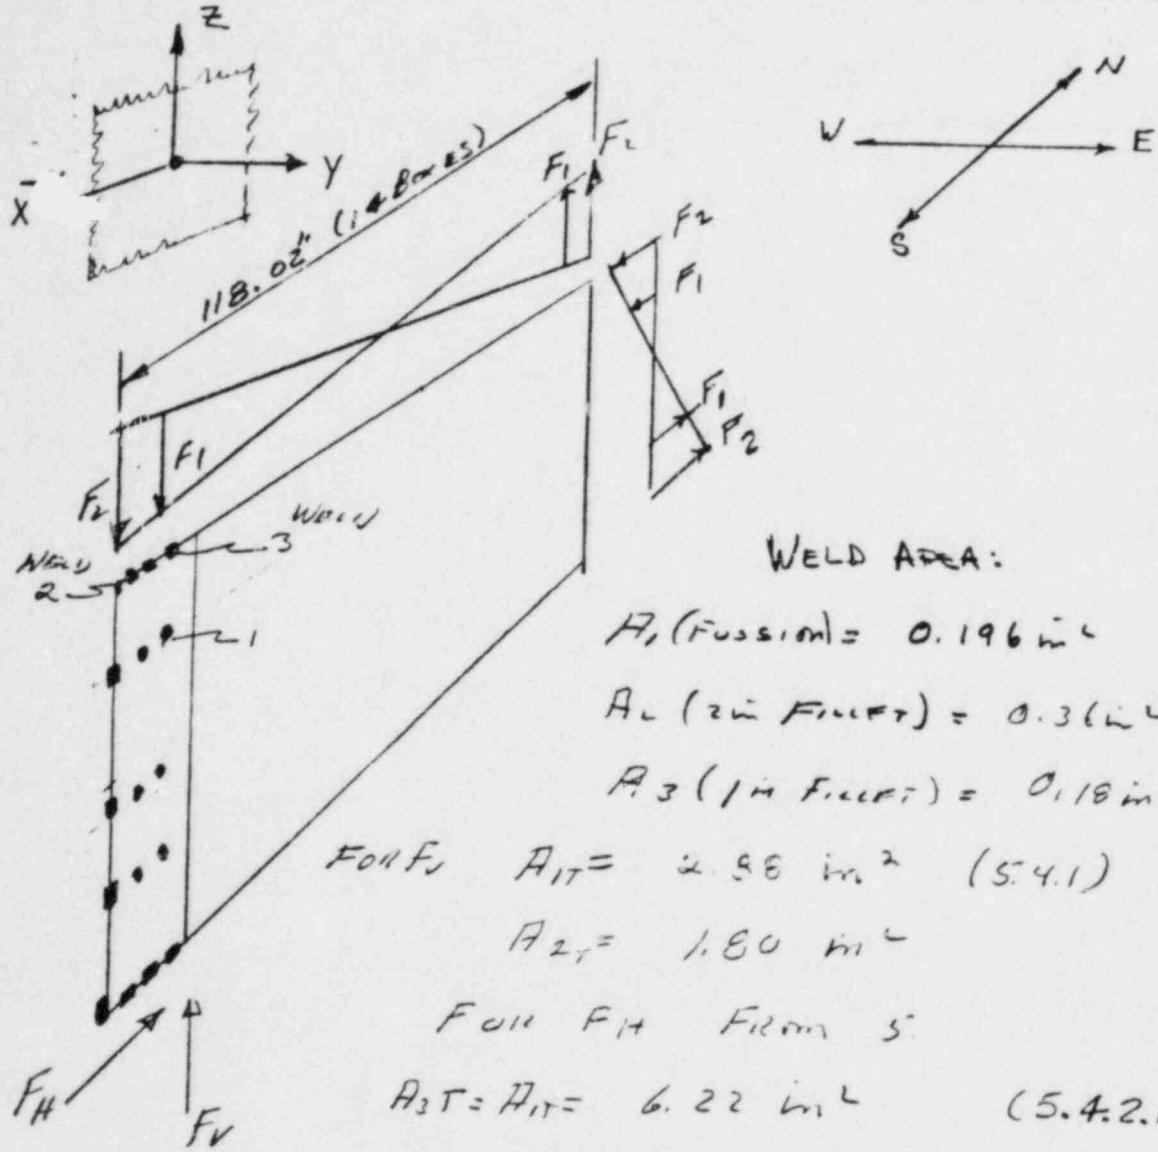 Z
N
W
E
Y
X
S
118.02" (14 BOXES)
F1
F2
F2
F1
F1
F2
F1
F2
WELD
3
WELD
2
1
WELD AREA:
A1 (FUSSION) = 0.196 in²
A2 (2in FILLET) = 0.36in²
A3 (1in FILLET) = 0.18 in
FOR FV A1T = 2.98 in² (5.4.1)
A2T = 1.80 in²
FOR FH FROM 5.
A3T = A1T = 6.22 in² (5.4.2.
FH
FV